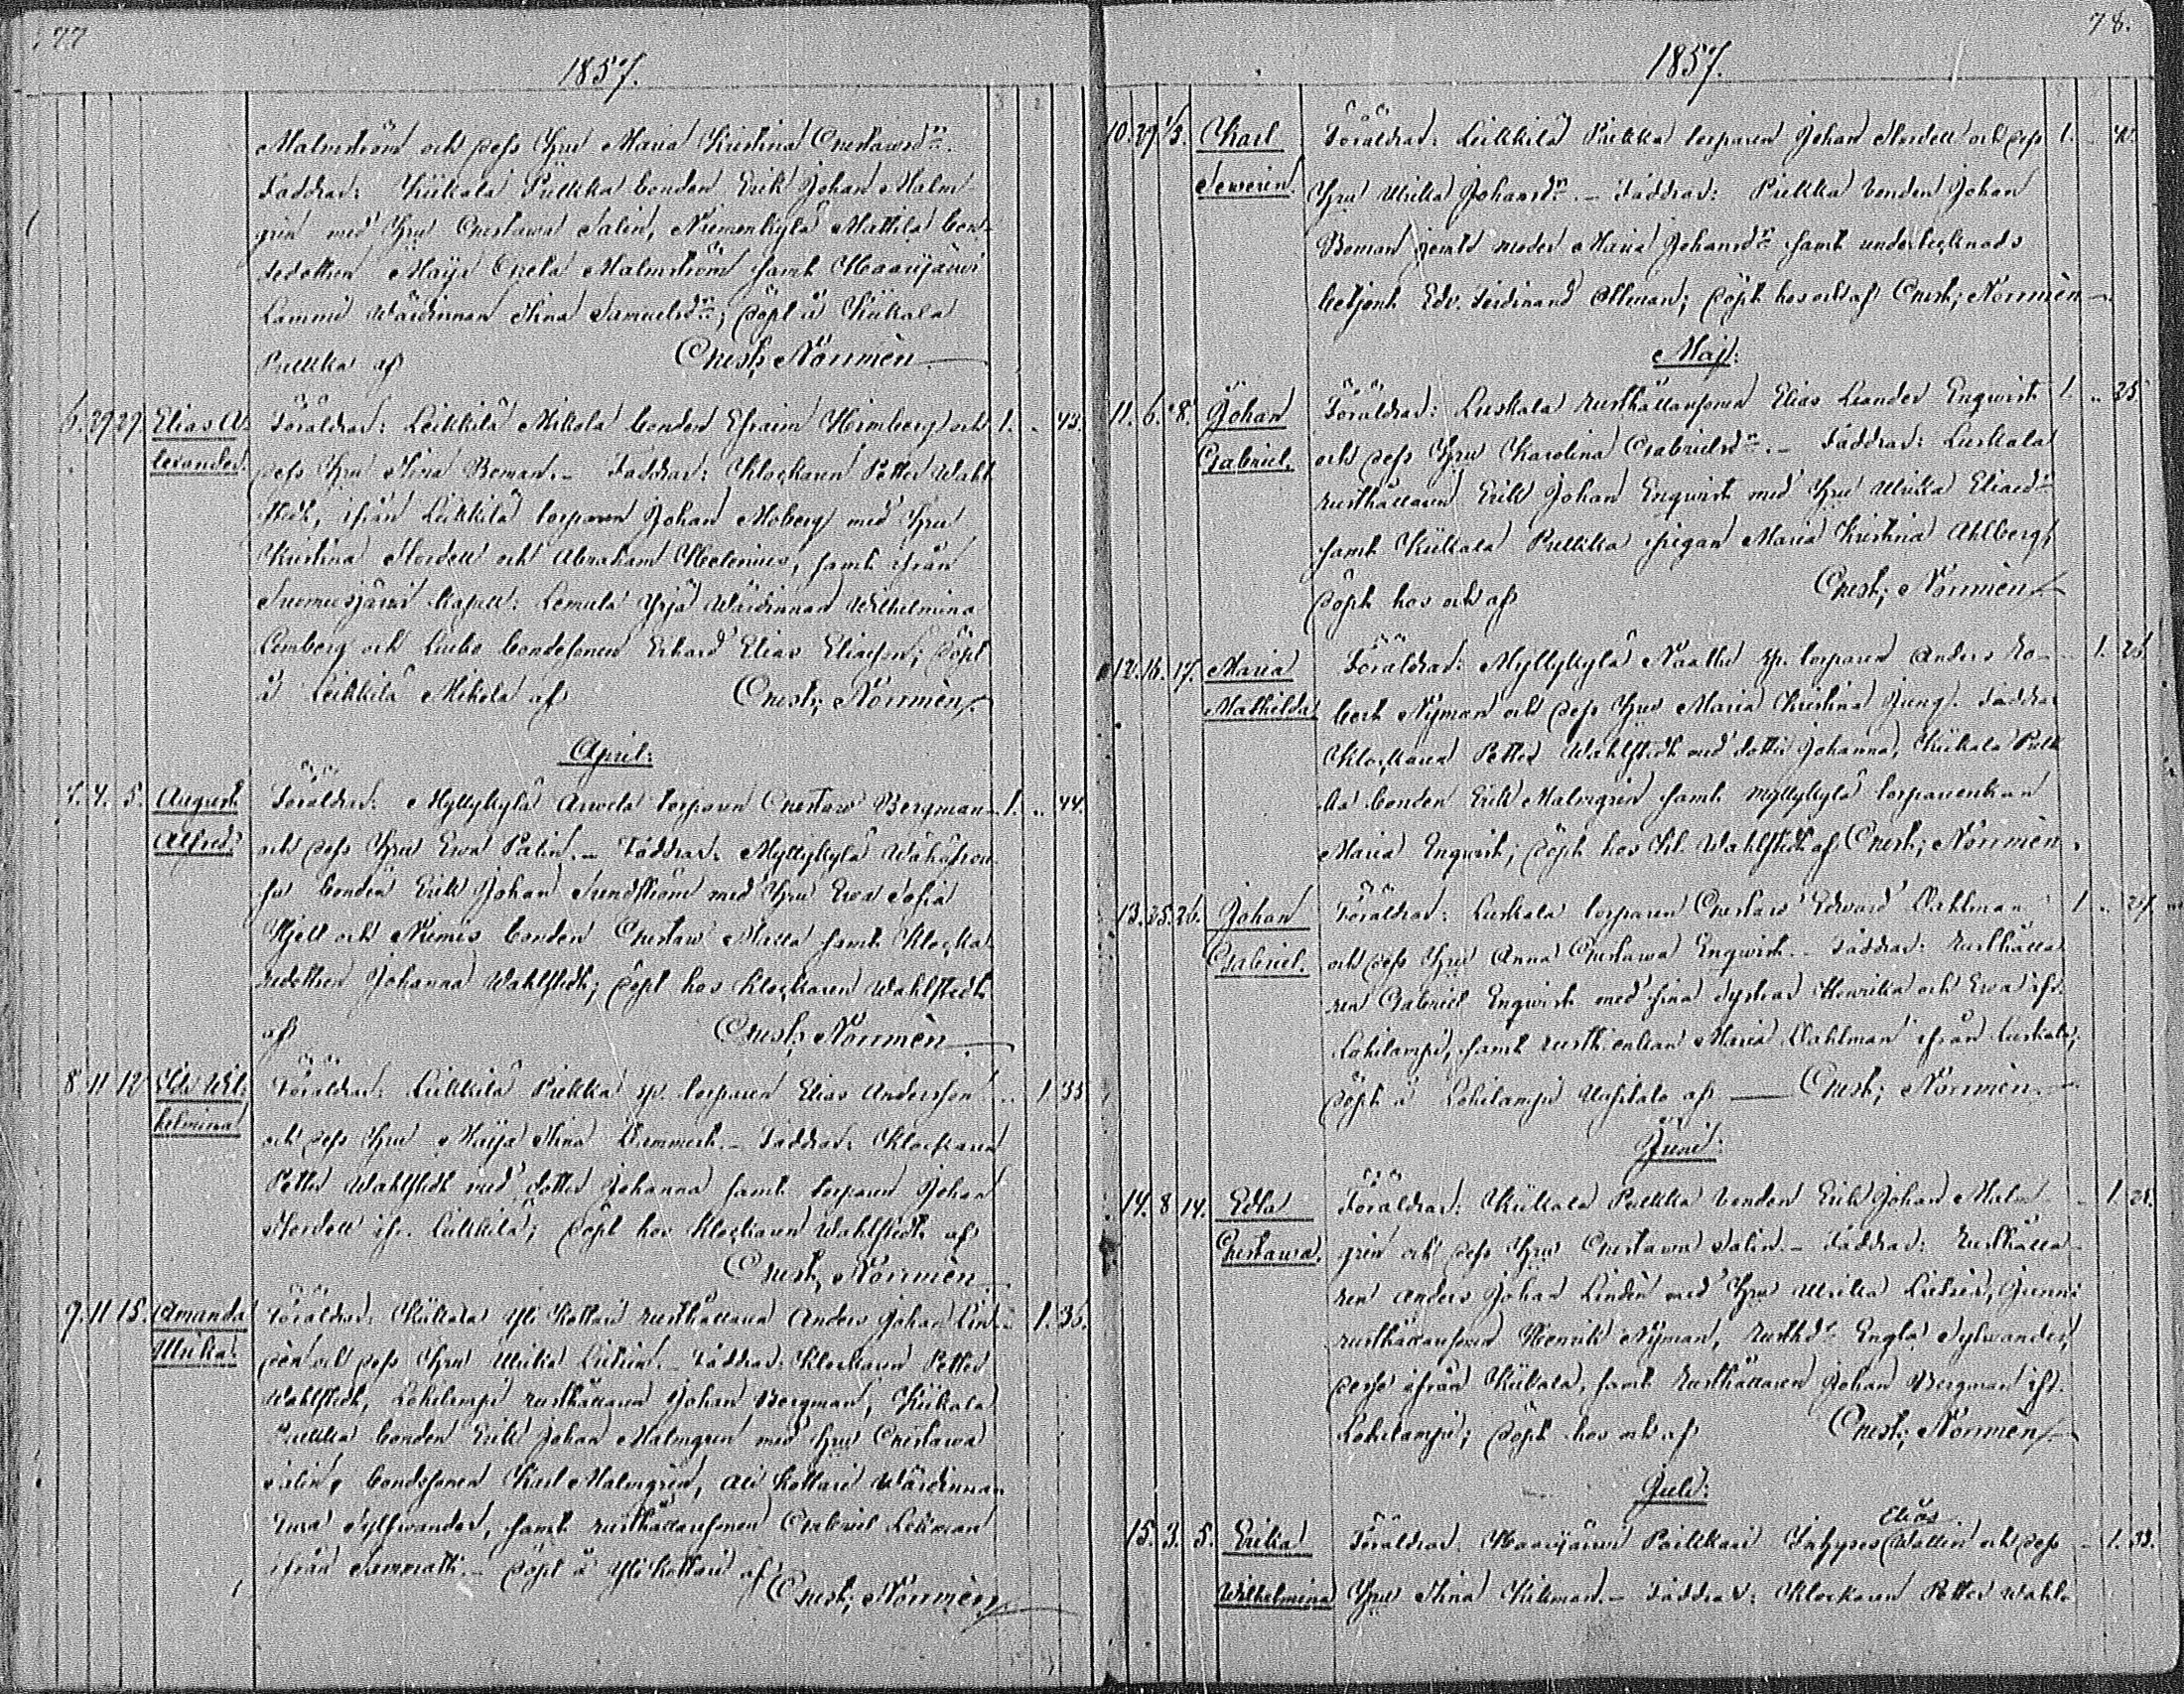 77
1857.
Malmström och dess Hru Maria Kristina Gustawsdr.
Faddrar: Kiikala Pullkka bonden Erik Johan Malm
grén med Hru Gustawa Salin, Niemenkylä Mattila bon-
dedottren Maija Greta Malmström samt Haarijärvi
Lammi Wärdinnan Stina Samuelsdr; döpt å Kiikala
Pullkka af Gust; Norrmén
6. 29 29 Elias A- Föräldrar: Leikkilä Mikola bonden Efraim Heimberg och 1. .. 43.
lexander. dess Hru Stina Boman. - Faddrar: Klockaren Petter Wahl
stedt, ifrån Leikkilä torparen Johan Moberg med Hru
Kristina Nordell och Abraham Helenius, samt ifrån
Suomusjärvi kapell: Lemula Yrjä Wärdinnan Wilhelmina
Lemberg och bondesonen Erhard Elias Eliasson; döpt
å Leikkilä Mikola af Gust; Norrmén
April:
7. 4. 5. August Föräldrar: Myllykylä Anvela torparen Gustaw Bergman 1. .. 44.
Alfred. och dess Hru Ewa Palin. - Faddrar: Myllykylä
bonden Erik Johan Sundström med Hru Ewa Sofia
Kjell och Niemis bonden Gustaw Matts samt Klocka
redottren Johanna Wahlstedt; döpt hos Klockaren Wahlstedt
af Gust; Norrmén
8. 11 12 Wil- Föräldrar: Leikkilä Pullkka sp. torparen Elias Andersson .. 1. 35
helmina och dess Hru Maija Stina Lemmert. - Faddrar: Klockaren
Petter Wahlstedt med dotter Johanna samt torparen Johan
Nordell ifr. Leikkilä; döpt hos Klockaren Wahlstedt af
Gust; Norrmén
9. 11 15. Amanda Föräldrar: Kiikala Yli Kottari rusthållaren Anders Johan Lin- .. 1. 36.
Ulrika. dén och dess Hru Ulrika Lidsén. - Faddrar: Klockaren Petter
Wahlstedt, Lohilampi rusthållaren Johan Bergman, Kiikala
Pullkka bonden Erik Johan Malmgren med Hru Gustawa
Salin, bondesonen Karl Malmgrén, Ali Kottari Wärdinnan
Sylfwander, samt rusthållaresonen Gabriel Lehman
ifrån. - döpt å Yli Kottari af
Gust; Norrmén
78.
1857.
10. 29 1/5. Karl Föräldrar: Leikkilä Pullkka torparen Johan Nordell och dess 1. ..
Sewerin. Hru Ulrika Johansdr. - Faddrar: Pullkka bonden Johan
Boman jemte moder Maria Johansdr samt underlieutnads
betjent Edv. Ferdinand Ollman; döpt hos och af Gust; Norrmén
Maj:
11. 6. 8. Johan Föräldrar: Luskala rusthållaresonen Elias Leander Engwist 1. .. 25
Gabriel. och dess Hru Karolina Gabrielsdr. - Faddrar: Luskala
rusthållaren Erik Johan Engwist med Hru Ulrika Eliaedr
samt Kiikala Pullkka pigan Maria Kristina Ahlberg;
döpt hos och af Gust; Norrmén
12. 16. 17. Maria Föräldrar: Myllykylä Naattu sp. torparen Anders Ro- .. 1. 26
Mathilda bert Nyman och dess Hru Maria Kristina Ljung. Faddrar
Klockaren Petter Wahlstedt med dotter Johanna, Kiikala Pull
ka bonden Erik Malmgrén samt Myllykylä torpareenkan
Maria Engwist; döpt hos Kl. Wahlstedt af Gust; Norrmén.
13. 25. 26. Johan Föräldrar: Luskala torparen Gustaw Edward Dahlman 1. .. 27.
Gabriel. och dess Hru Anna Gustawa Engwist. - Faddrar: Rusthålla
ren Gabriel Engwist med sina systrar Henrika och Ewa ifr.
Lohilampi, samt rusth:enkan Maria Dahlman ifrån Luskala;
döpt å Lohilampi Uusitalo af Gust; Norrmén.
Juni:
14. 8 14. Edla Föräldrar: Kiikala Pullkka bonden Erik Johan Malm - .. 1. 28.
Gustawa. grén och dess Hru Gustawa Salin. - Faddrar: Rusthålla
ren Anders Johan Lindén med Hru Ulrika Lidsén, Junni
rusthållaresonen Henrik Nyman, Rusthdr Engla Sylwander,
desse ifrån Kiikala, samt Rusthållaren Johan Bergman ifr.
Lohilampi; döpt hos och af Gust; Norrmén
Juli:
15. 3. 5. Eulia Föräldrar: Haarijärvi Poikkari Inhyses Elias Wallin och dess .. 1. 33.
Wilhelmina Hru Stina Wikman. - Faddrar: Klockaren Petter Wahl-